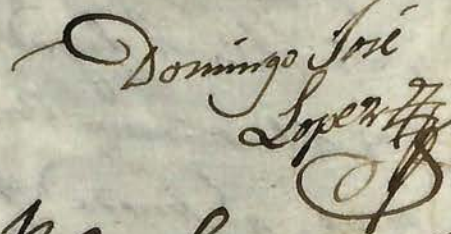 Domingo José
Lopez